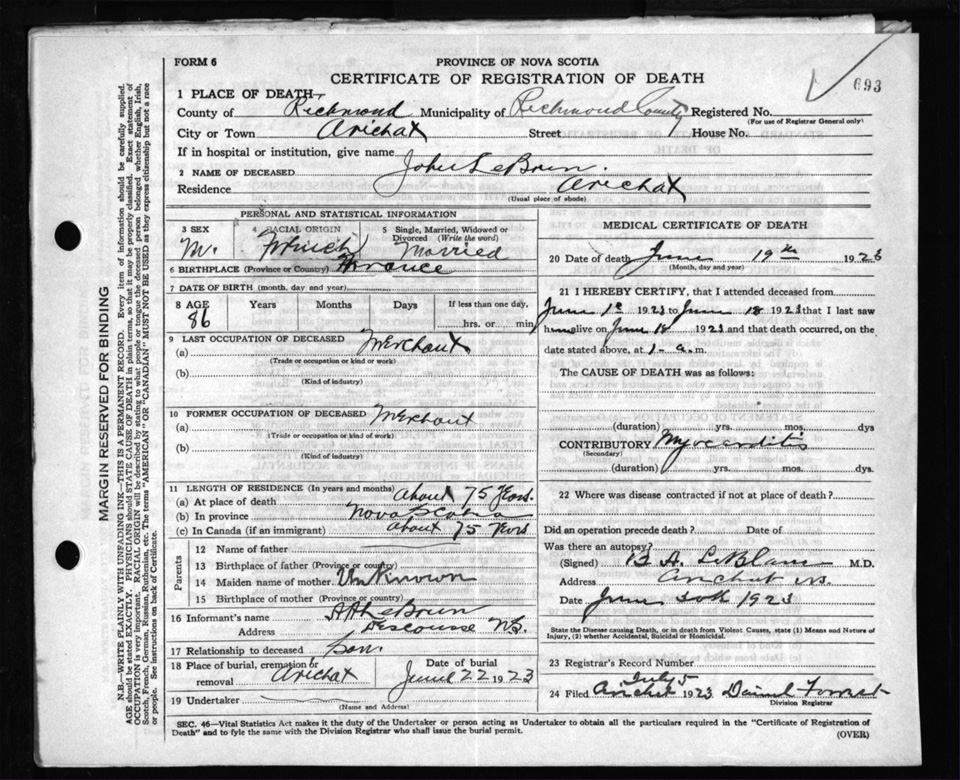 693
FORM 6
PROVINCE OF NOVA SCOTIA
CERTIFICATE OF REGISTRATION OF DEATH
1 PLACE OF DEATH—
County of Richmond Municipality of Richmond County Registered No.
(For use of Registrar General only)
City or Town Arichat Street House No.
If in hospital or institution, give name
2 NAME OF DECEASED John LeBrun
Residence Arichat
(Usual place of abode)
PERSONAL AND STATISTICAL INFORMATION
3 SEX 4 RACIAL ORIGIN 5 Single, Married, Widowed or Divorced (Write the word)
M. French Married
6 BIRTHPLACE (Province or Country) France
7 DATE OF BIRTH (month, day, and year)
8 AGE Years Months Days If less than one day,
86 hrs. or min.
9 LAST OCCUPATION OF DECEASED
(a) Merchant
(Trade or occupation or kind or work)
(b)
(Kind of industry)
10 FORMER OCCUPATION OF DECEASED
(a) Merchant
(Trade or occupation or kind of work)
(b)
(Kind of industry)
11 LENGTH OF RESIDENCE (In years and months)
(a) At place of death about 75 Years.
(b) In province Nova Scotia
(c) In Canada (if an immigrant) about 75 Years
Parents
12 Name of father
13 Birthplace of father (Province or country)
14 Maiden name of mother Unknown
15 Birthplace of mother (Province or country)
16 Informant's name LeBrun
Address Descousse NS.
17 Relationship to deceased Son.
18 Place of burial, cremation or removal Arichat Date of burial June 22 1923
19 Undertaker
(Name and Address)
MEDICAL CERTIFICATE OF DEATH
20 Date of death June 19th 1923
(Month, day and year)
21 I HEREBY CERTIFY, that I attended deceased from
June 1st 1923 to June 18 1923 that I last saw
him alive on June 18 1923 and that death occurred, on
date stated above, at 1 a.m.
The CAUSE OF DEATH was as follows:
(duration) yrs. mos. dys
CONTRIBUTORY Myocarditis
(Secondary)
(duration) yrs. mos. dys.
22 Where was disease contracted if not at place of death?
Did an operation precede death? Date of
Was there an autopsy?
(Signed) B. A. LeBlanc M.D.
Address Arichat NS.
Date June 30th 1923
State the Disease causing Death, or in death from Violent Causes, state (1) Means and Nature of
Injury, (2) whether Accidental, Suicidal or Homicidal.
23 Registrar's Record Number
24 Filed July 5 Arichat 1923 Daniel Forrest
Division Registrar
SEC. 46—Vital Statistics Act makes it the duty of the Undertaker or person acting as Undertaker to obtain all the particulars required in the "Certificate of Registration of
Death" and to fyle the same with the Division Registrar who shall issue the burial permit.
(OVER)
MARGIN RESERVED FOR BINDING
N.B.—WRITE PLAINLY WITH UNFADING INK—THIS IS A PERMANENT RECORD. Every item of information should be carefully supplied.
AGE should be stated EXACTLY. PHYSICIANS should STATE CAUSE OF DEATH in plain terms, so that it may be properly classified. Exact statement of
OCCUPATION is very important. RACIAL ORIGIN will be described by stating to what people or tongue the deceased person belonged whether English, Irish,
Scotch, French, German, Russian, Ruthenian, etc. The terms "AMERICAN" OR "CANADIAN" MUST NOT BE USED as they express citizenship but not a race
or people. See instructions on back of Certificate.